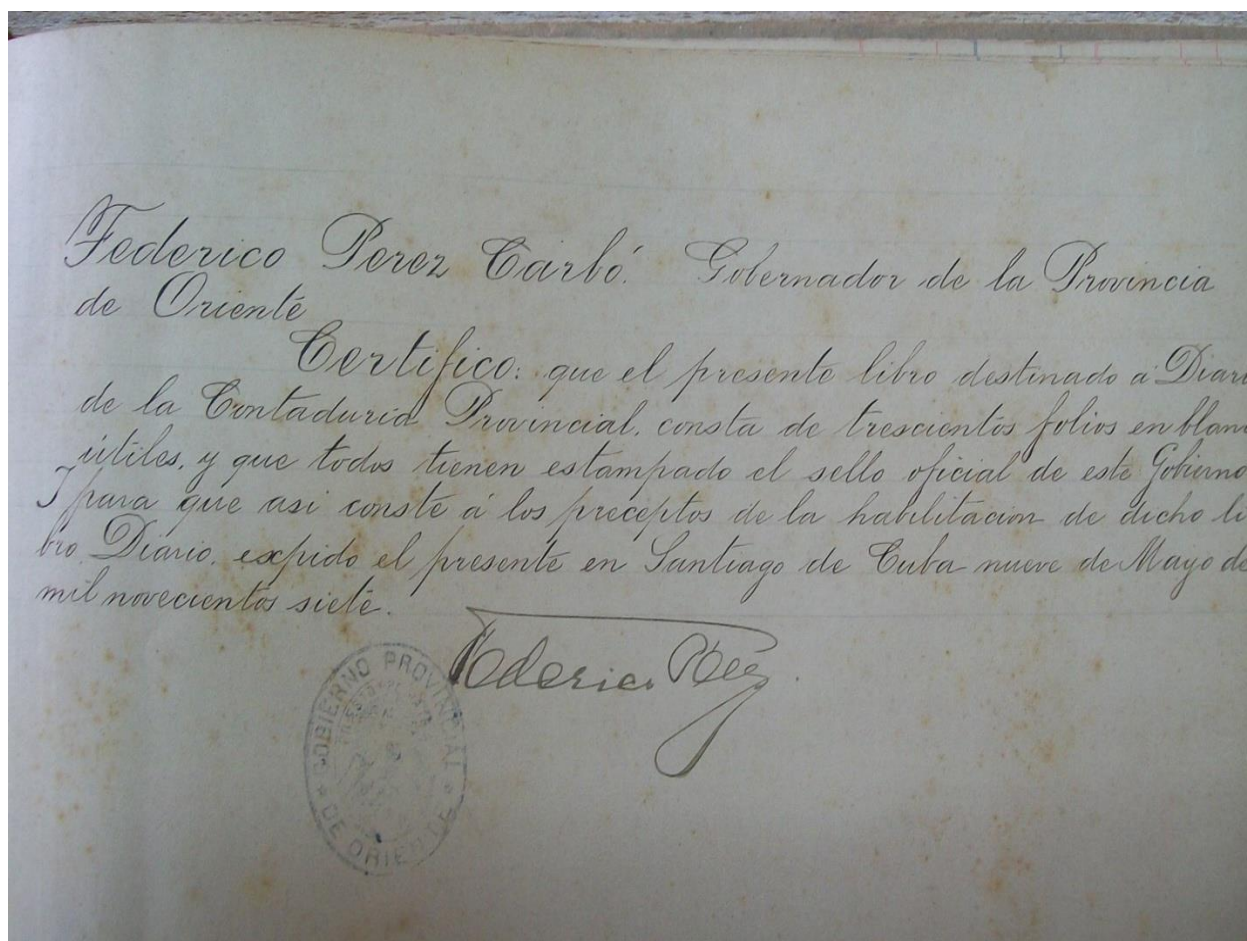 Federico Perez Carbó. Gobernador de la Provincia
de Oriente
Certifico: que el presente libro destinado á Diari
de la Contaduria Provincial, consta de trescientos folios en blan
útiles, y que todos tienen estampado el sello oficial de este Gobierno
I para que asi conste á los preceptos de la habilitacion de dicho li-
bro Diario, expido el presente en Santiago de Cuba nueve de Mayo de
mil novecientos siete.
Federico Pez
GOBIERNO PROVINCIAL
DE ORIENTE